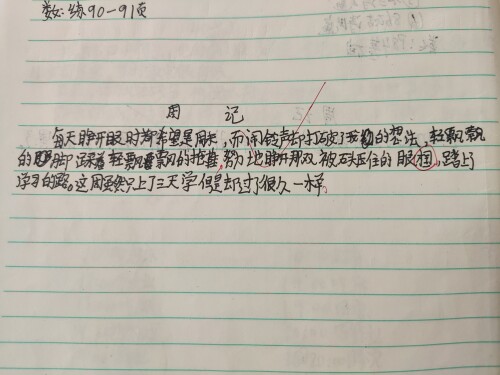 数:练90-91页
周 记
每天睁开眼时都希望是周末,而闹铃声却打破了我的想法,轻飘飘
的脚踩着轻飘飘的拖鞋,努力地睁开那双被石头压住的眼,踏上了
学习的路。这周虽然只上了三天学但是却过了很久一样。